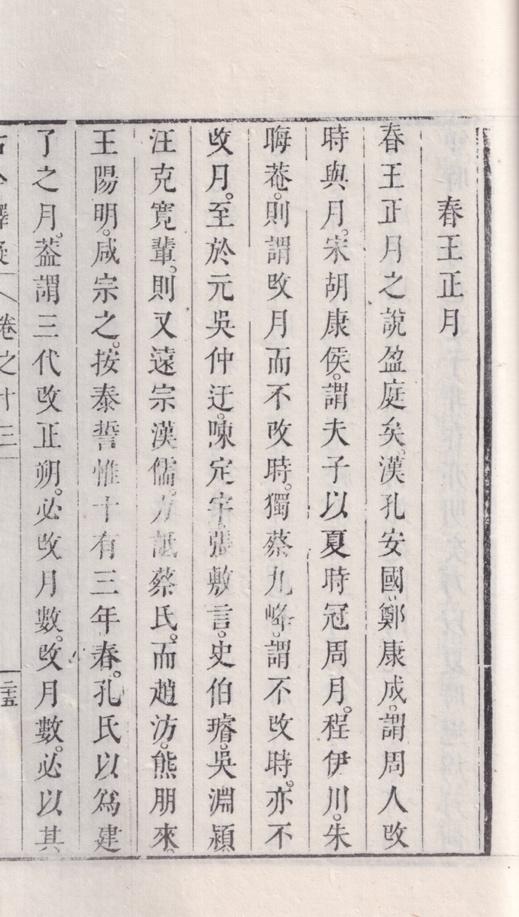 春王正月
春王正月之說盈庭矣。漢孔安國、鄭康成。謂周人改
時與月。宋胡康侯。謂夫子以夏時冠周月。程伊川。朱
晦菴。則謂改月而不改時。獨蔡九峰。謂不改時。亦不
改月。至於元吳仲迂。陳定宇。張敷言。史伯璿。吳淵穎
汪克寬輩。則又遠宗漢儒。力詆蔡氏。而趙汸。熊朋來。
王陽明。咸宗之。按泰誓惟十有三年春。孔氏以爲建
了之月。葢謂三代改正朔。必改月數。改月數。必以其
卷之十三
二十五